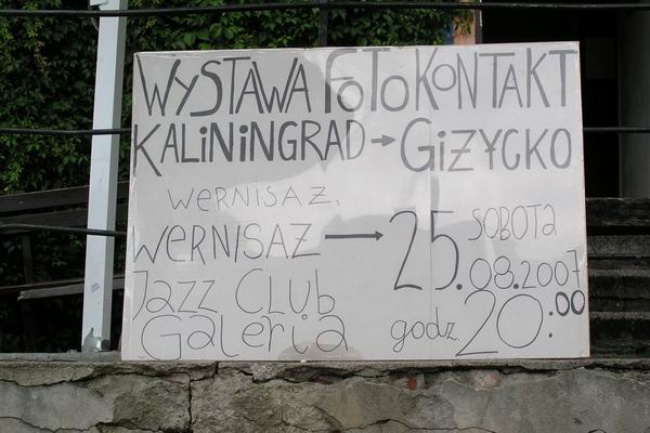 WYSTAWA FOTOKONTAKT
KALININGRAD → GIŻYCKO
WERNISAZ,
WERNISAZ → 25. SOBOTA 08.2007
Jazz CLUb
Galeria godz. 20:00